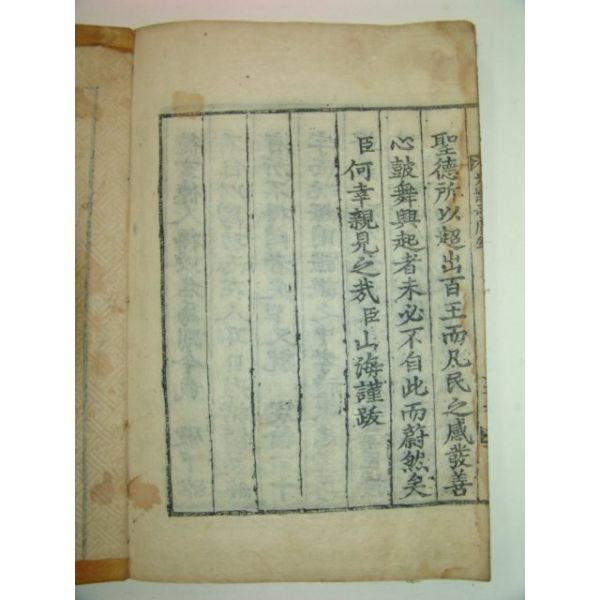 聖德所以超出百王而凡民之感發善
心鼓舞興起者未必不自此而蔚然矣
臣何幸親見之㢤臣山海謹跋